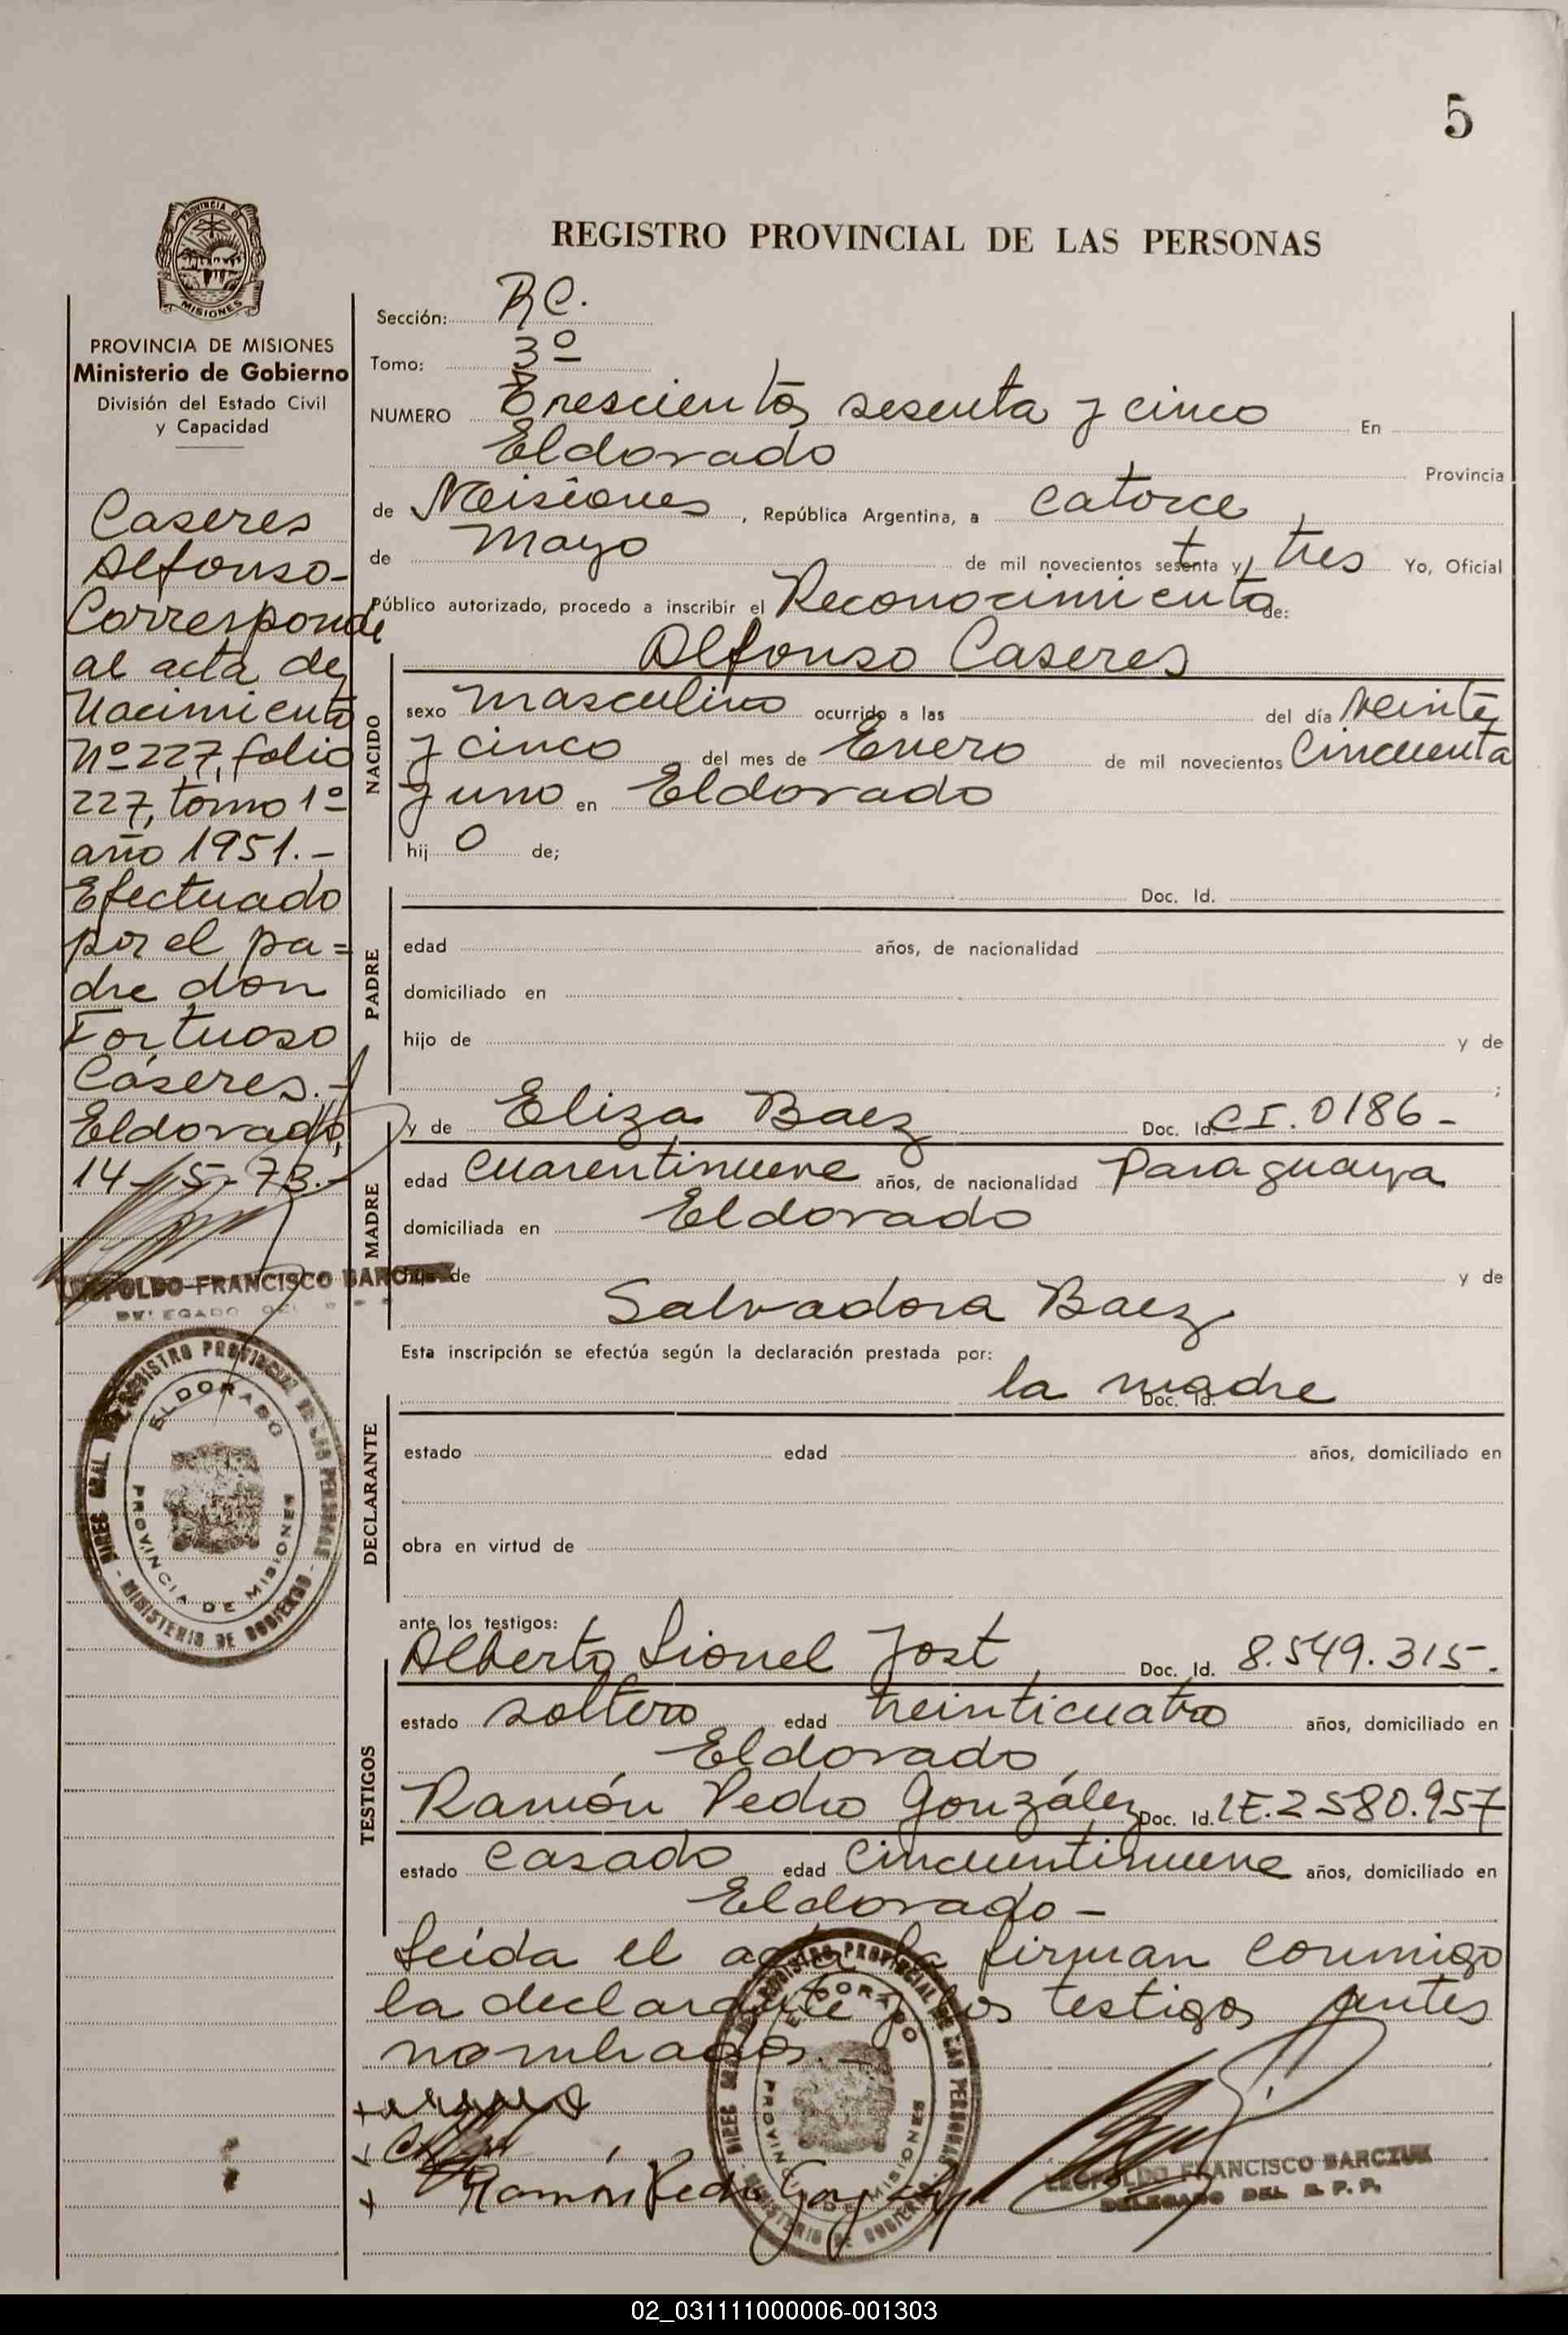 5
PROVINCIA DE
MISIONES
PROVINCIA DE MISIONES
Ministerio de Gobierno
División del Estado Civil
y Capacidad
Caseres
Alfonso-
Corresponde
al acta de
Nacimiento
Nº 227, folio
227, tomo 1º
año 1951.-
Efectuado
por el pa=
dre don
Fortuoso
Cáseres.-
Eldorado,
14-5-73.-
LEOPOLDO FRANCISCO BARCZUK
DELEGADO DEL
DIREC. GRAL. DEL REGISTRO PROVINCIAL DE LAS PERSONAS
ELDORADO
PROVINCIA DE MISIONES
- MINISTERIO DE GOBIERNO -
REGISTRO PROVINCIAL DE LAS PERSONAS
Sección: RC.
Tomo: 3º
NUMERO Trescientos sesenta y cinco En
Eldorado Provincia
de Misiones, República Argentina, a catorce
de Mayo de mil novecientos setenta y tres Yo, Oficial
Público autorizado, procedo a inscribir el Reconocimiento de:
Alfonso Caseres
NACIDO
sexo masculino ocurrido a las del día veinte
y cinco del mes de Enero de mil novecientos Cincuenta
y uno en Eldorado
hij o de;
PADRE
Doc. Id.
edad años, de nacionalidad
domiciliado en
hijo de y de
;
MADRE
y de Eliza Baez Doc. Id. CI. 0186-
edad cuarentinueve años, de nacionalidad Paraguaya
domiciliada en Eldorado
hija de y de
Salvadora Baez
Esta inscripción se efectúa según la declaración prestada por:
DECLARANTE
la madre Doc. Id.
estado edad años, domiciliado en
obra en virtud de
ante los testigos:
TESTIGOS
Alberto Lionel Jost, Doc. Id. 8.549.315.
estado soltero edad veinticuatro años, domiciliado en
Eldorado
Ramón Pedro González Doc. Id. LE. 2580.957
estado casado edad Cincuentinueve años, domiciliado en
Eldorado-
Leída el acta la firman conmigo
la declarante y los testigos antes
nombrados.-
Ramón Pedro González
DIREC. GRAL. DEL REGISTRO PROVINCIAL DE LAS PERSONAS
ELDORADO
PROVINCIA DE MISIONES
- MINISTERIO DE GOBIERNO -
LEOPOLDO FRANCISCO BARCZUK
DELEGADO DEL R. P. P.
02_031111000006-001303